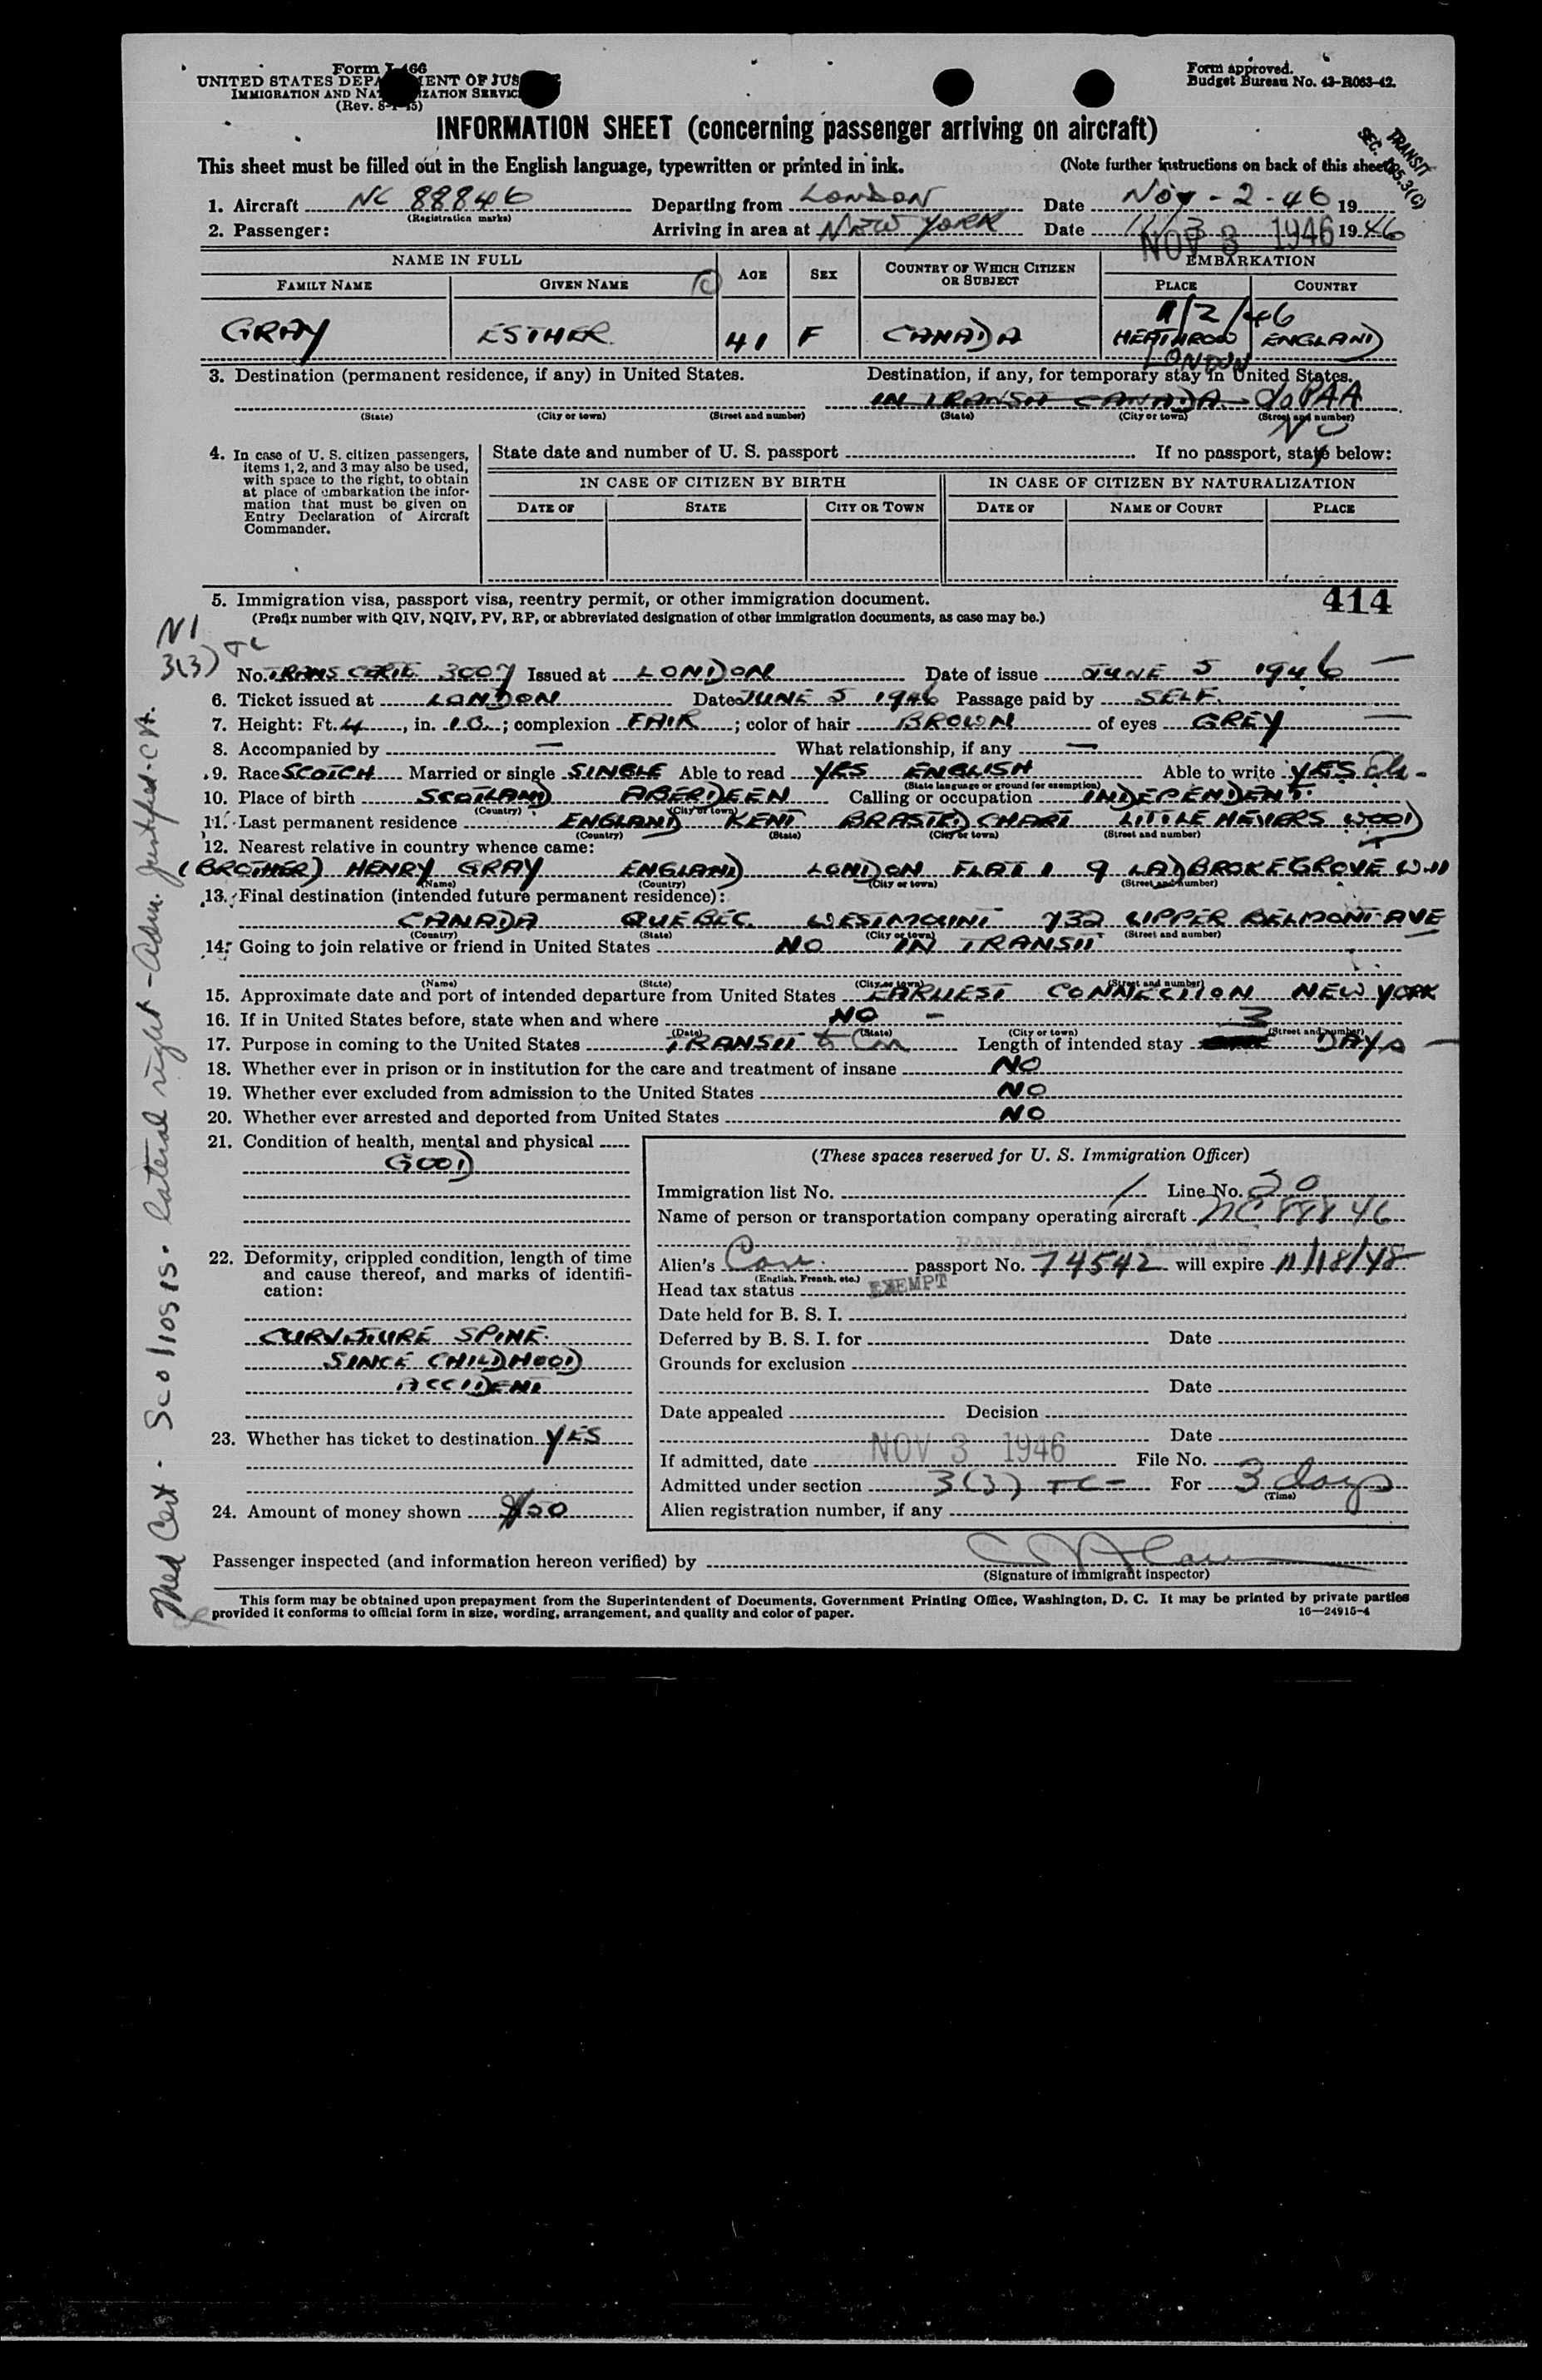 Form I-466
UNITED STATES DEPARTMENT OF JUSTICE
IMMIGRATION AND NATURALIZATION SERVICE
(Rev. 8-1-45)
Form approved.
Budget Bureau No. 43-R063-42.
INFORMATION SHEET (concerning passenger arriving on aircraft)
TRANSIT
SEC. 125.3(C)
This sheet must be filled out in the English language, typewritten or printed in ink. (Note further instructions on back of this sheet)
1. Aircraft NC 88846 Departing from LONDON Date Nov - 2 - 46 19
(Registration marks)
2. Passenger: Arriving in area at NEW YORK Date 11/3 1946
NOV 3 1946
NAME IN FULL AGE SEX COUNTRY OF WHICH CITIZEN OR SUBJECT EMBARKATION
FAMILY NAME GIVEN NAME (C) PLACE COUNTRY
11/2/46
GRAY ESTHER 41 F CANADA HEATHROW ENGLAND
LONDON
3. Destination (permanent residence, if any) in United States. Destination, if any, for temporary stay in United States.
IN TRANSIT CANADA c/o PAA
(State) (City or town) (Street and number) (State) (City or town) (Street and number)
NY
4. In case of U. S. citizen passengers, items 1, 2, and 3 may also be used, with space to the right, to obtain at place of embarkation the information that must be given on Entry Declaration of Aircraft Commander.
State date and number of U. S. passport If no passport, state below:
IN CASE OF CITIZEN BY BIRTH IN CASE OF CITIZEN BY NATURALIZATION
DATE OF STATE CITY OR TOWN DATE OF NAME OF COURT PLACE
5. Immigration visa, passport visa, reentry permit, or other immigration document. 414
(Prefix number with QIV, NQIV, PV, RP, or abbreviated designation of other immigration documents, as case may be.)
NI
3(3) TC
No. TRANS CERTE 3007 Issued at LONDON Date of issue JUNE 5 1946
6. Ticket issued at LONDON Date JUNE 5 1946 Passage paid by SELF
7. Height: Ft. 4, in. 10; complexion FAIR; color of hair BROWN of eyes GREY
8. Accompanied by — What relationship, if any —
9. Race SCOTCH Married or single SINGLE Able to read YES ENGLISH Able to write YES
(State language or ground for exemption)
10. Place of birth SCOTLAND ABERDEEN Calling or occupation INDEPENDENT
(Country) (City or town)
11. Last permanent residence ENGLAND KENT BRASTED CHART LITTLE HEVERS WOOD
(Country) (State) (City or town) (Street and number)
12. Nearest relative in country whence came:
(BROTHER) HENRY GRAY ENGLAND LONDON FLAT 1 9 LADBROKE GROVE W 11
(Name) (Country) (City or town) (Street and number)
13. Final destination (intended future permanent residence):
CANADA QUEBEC WESTMOUNT 732 UPPER BELMONT AVE
(Country) (State) (City or town) (Street and number)
14. Going to join relative or friend in United States NO IN TRANSIT
(Name) (State) (City or town) (Street and number)
15. Approximate date and port of intended departure from United States EARLIEST CONNECTION NEW YORK
16. If in United States before, state when and where NO -
(Date) (State) (City or town) (Street and number)
17. Purpose in coming to the United States TRANSIT to Can Length of intended stay 3 DAYS
18. Whether ever in prison or in institution for the care and treatment of insane NO
19. Whether ever excluded from admission to the United States NO
20. Whether ever arrested and deported from United States NO
21. Condition of health, mental and physical
GOOD
22. Deformity, crippled condition, length of time and cause thereof, and marks of identification:
CURVATURE SPINE
SINCE CHILDHOOD
ACCIDENT
23. Whether has ticket to destination YES
24. Amount of money shown $50
(These spaces reserved for U. S. Immigration Officer)
Immigration list No. 1 Line No. 20
Name of person or transportation company operating aircraft NC 88846
PAN AMERICAN AIRWAYS
Alien's Can. passport No. 74542 will expire 11/18/48
(English, French, etc.)
Head tax status EXEMPT
Date held for B. S. I.
Deferred by B. S. I. for Date
Grounds for exclusion
Date
Date appealed Decision
Date
If admitted, date NOV 3 1946 File No.
Admitted under section 3(3) TC - For 3 days
(Time)
Alien registration number, if any
Passenger inspected (and information hereon verified) by
(Signature of immigrant inspector)
This form may be obtained upon prepayment from the Superintendent of Documents, Government Printing Office, Washington, D. C. It may be printed by private parties
provided it conforms to official form in size, wording, arrangement, and quality and color of paper. 16—24915-4
Med Cert - Scoliosis. lateral right - Adm. Justified.